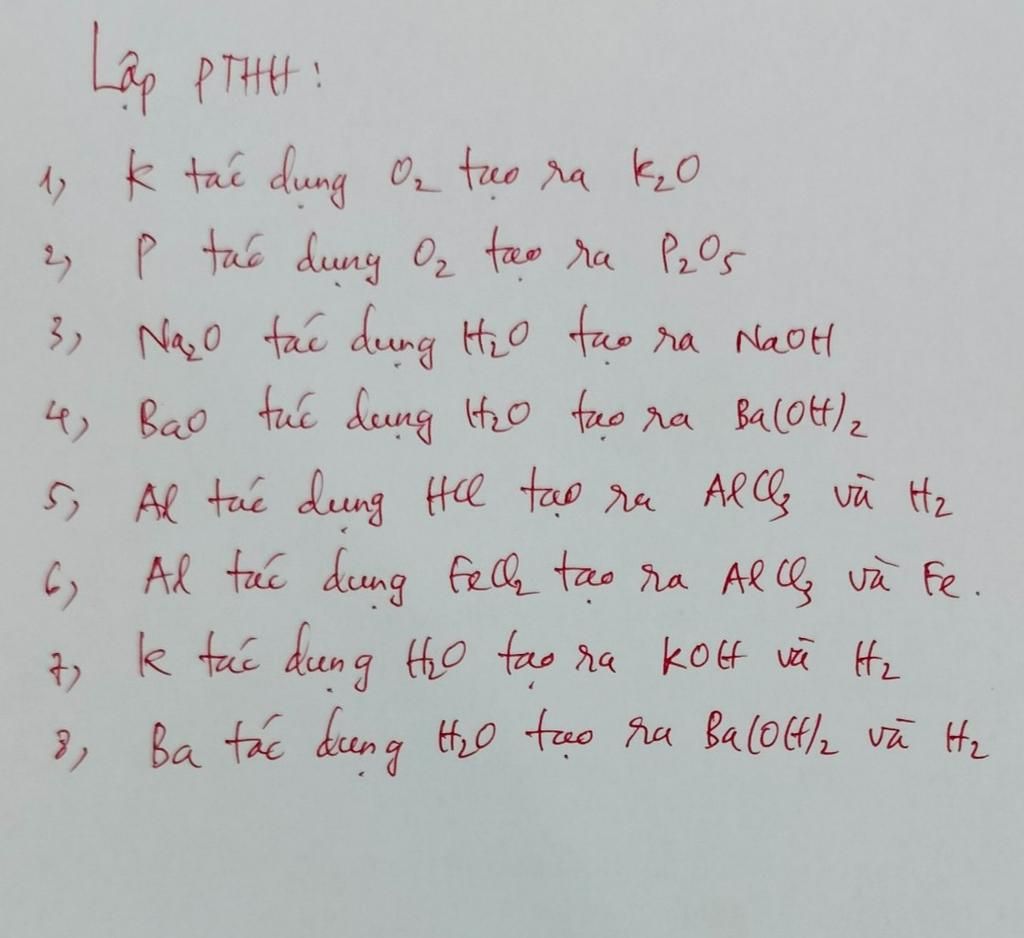 Lập PTHH:
1, K tác dụng O₂ tạo ra K₂O
2, P tác dụng O₂ tạo ra P₂O₅
3, Na₂O tác dụng H₂O tạo ra NaOH
4, BaO tác dụng H₂O tạo ra Ba(OH)₂
5, Al tác dụng HCl tạo ra AlCl₃ và H₂
6, Al tác dụng FeCl₂ tạo ra AlCl₃ và Fe.
7, K tác dụng H₂O tạo ra KOH và H₂
8, Ba tác dụng H₂O tạo ra Ba(OH)₂ và H₂